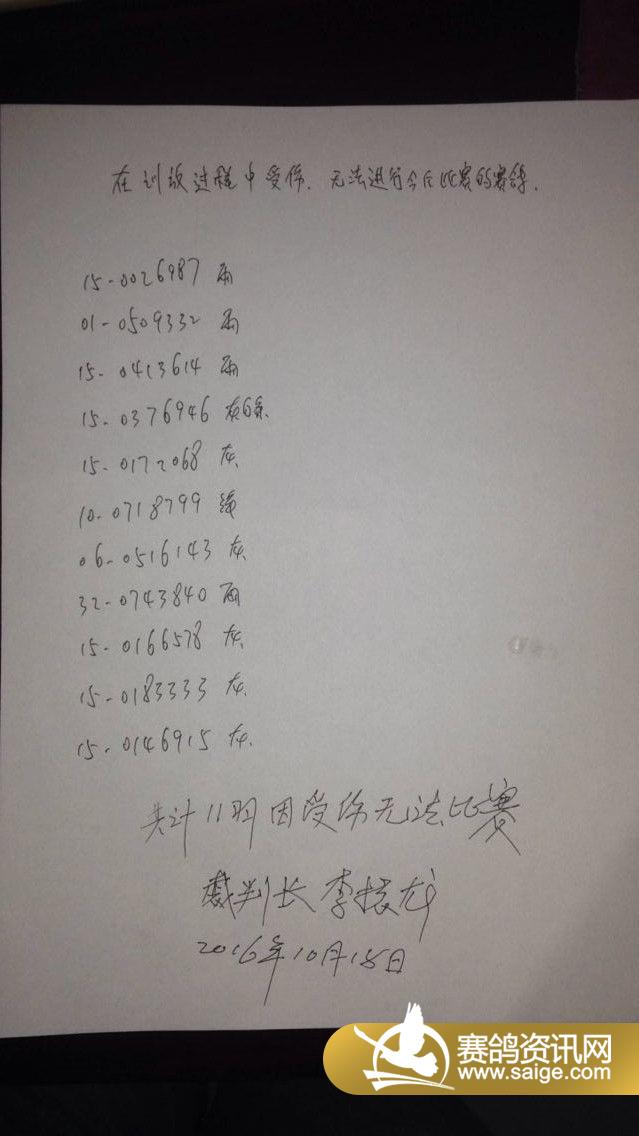 在训放过程中受伤.无法进行今后比赛的赛鸽.
15-0026987 雨
01-0509332 雨
15-0413614 雨
15-0376946 灰白条
15-0172068 灰
10-0718799 绛
06-0516143 灰
32-0743840 雨
15-0166578 灰
15-0183333 灰
15-0146915 灰.
共计11羽因受伤无法比赛
裁判长 李振龙
2016年10月15日
赛鸽资讯网
www.saige.com